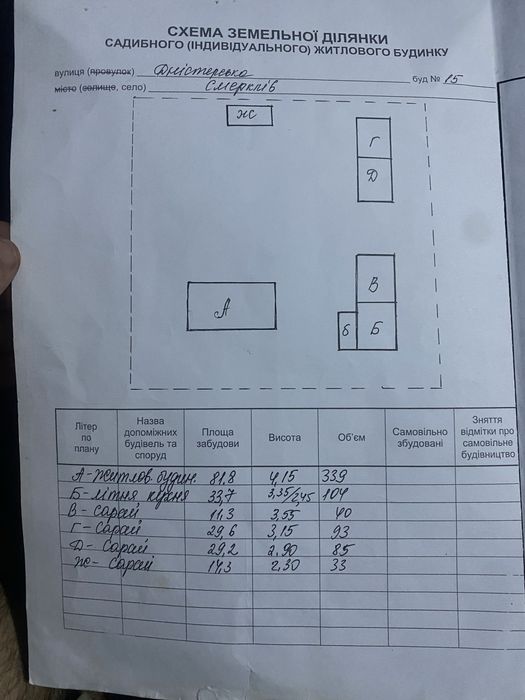 СХЕМА ЗЕМЕЛЬНОЇ ДІЛЯНКИ
САДИБНОГО (ІНДИВІДУАЛЬНОГО) ЖИТЛОВОГО БУДИНКУ
вулиця (провулок) Дністерська буд № 15
місто (селище, село) Смерклів
жс
Г
Д
В
А
б Б
Літер по плану Назва допоміжних будівель та споруд Площа забудови Висота Об'єм Самовільно збудовані Зняття відмітки про самовільне будівництво
А - житлов. будин. 81,8 4,15 339
Б - літня кухня 33,7 3,35/2,45 104
В - сарай 11,3 3,55 40
Г - сарай 29,6 3,15 93
Д - сарай 29,2 2.90 85
Ж - сарай 14,3 2,30 33